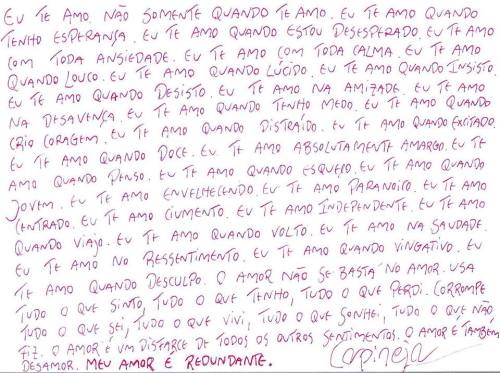 EU TE AMO. NÃO SOMENTE QUANDO TE AMO. EU TE AMO QUANDO
TENHO ESPERANSA. EU TE AMO QUANDO ESTOU DESESPERADO. EU TE AMO
COM TODA ANSIEDADE. EU TE AMO COM TODA CALMA. EU TE AMO
QUANDO LOUCO. EU TE AMO QUANDO LÚCIDO. EU TE AMO QUANDO INSISTO.
EU TE AMO QUANDO DESISTO. EU TE AMO NA AMIZADE. EU TE AMO
NA DESAVENÇA. EU TE AMO QUANDO TENHO MEDO. EU TE AMO QUANDO
CRIO CORAGEM. EU TE AMO QUANDO DISTRAÍDO. EU TE AMO QUANDO EXCITADO.
EU TE AMO QUANDO DOCE. EU TE AMO ABSOLUTAMENTE AMARGO. EU TE
AMO QUANDO PENSO. EU TE AMO QUANDO ESQUEÇO. EU TE AMO QUANDO
JOVEM. EU TE AMO ENVELHECENDO. EU TE AMO PARANOICO. EU TE AMO
CENTRADO. EU TE AMO CIUMENTO. EU TE AMO INDEPENDENTE. EU TE AMO
QUANDO VIAJO. EU TE AMO QUANDO VOLTO. EU TE AMO NA SAUDADE.
EU TE AMO NO RESSENTIMENTO. EU TE AMO QUANDO VINGATIVO. EU
TE AMO QUANDO DESCULPO. O AMOR NÃO SE BASTA NO AMOR. USA
TUDO O QUE SINTO, TUDO O QUE TENHO, TUDO O QUE PERDI. CORROMPE
TUDO O QUE SEI, TUDO O QUE VIVI, TUDO O QUE SONHEI, TUDO O QUE NÃO
FIZ. O AMOR É UM DISFARCE DE TODOS OS OUTROS SENTIMENTOS. O AMOR É TAMBÉM
DESAMOR. MEU AMOR É REDUNDANTE. Carpinejar